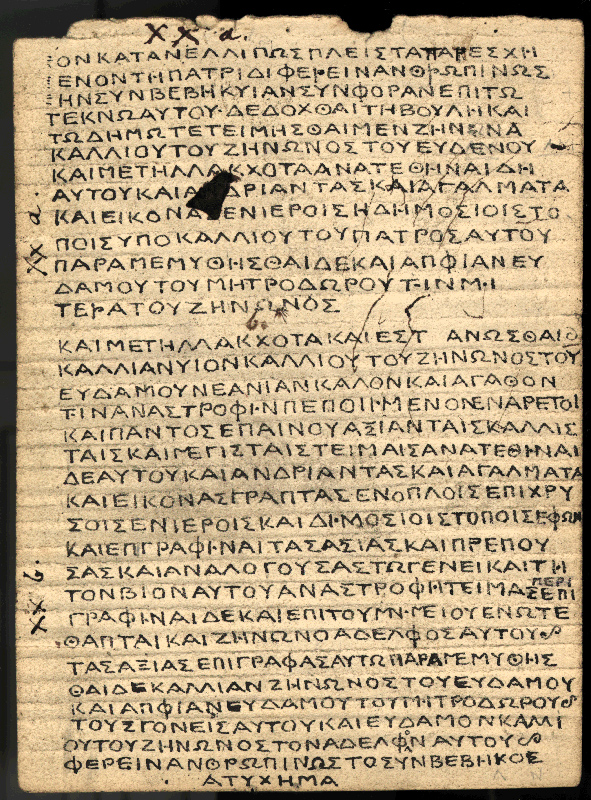 XX a.
ΟΝΚΑΤΑΝΕΛΛΙΠΩΣΠΛΕΙΣΤΑΠΑΡΕΣΧΗ
ΕΝΟΝΤΗΠΑΤΡΙΔΙΦΕΡΕΙΝΑΝΘΡΩΠΙΝΩΣ
ΗΝΣΥΝΒΕΒΗΚΥΙΑΝΣΥΝΦΟΡΑΝΕΠΙΤΩ
ΤΕΚΝΩΑΥΤΟΥ·ΔΕΔΟΧΘΑΙΤΗΒΟΥΛΗΚΑΙ
ΤΩΔΗΜΩΤΕΤΕΙΜΗΣΘΑΙΜΕΝΖΗΝΩΝΑ
ΚΑΛΛΙΟΥΤΟΥΖΗΝΩΝΟΣΤΟΥΕΥΔΕΝΟΥ
ΚΑΙΜΕΤΗΛΛΑΚΧΟΤΑΑΝΑΤΕΘΗΝΑΙΔΗ
ΑΥΤΟΥΚΑΙΑ ΔΡΙΑΝΤΑΣΚΑΙΑΓΑΛΜΑΤΑ
ΚΑΙΕΙΚΟΝΑ ΕΝΙΕΡΟΙΣΗΔΗΜΟΣΙΟΙΣΤΟ
ΠΟΙΣΥΠΟΚΑΛΛΙΟΥΤΟΥΠΑΤΡΟΣΑΥΤΟΥ
XX a.
ΠΑΡΑΜΕΜΥΘΗΣΘΑΙΔΕΚΑΙΑΠΦΙΑΝΕΥ
ΔΑΜΟΥΤΟΥΜΗΤΡΟΔΩΡΟΥΤΙΝΜΙ
ΤΕΡΑΤΟΥΖΗΝΩΝΟΣ
b.
ΚΑΙΜΕΤΗΛΛΑΚΧΟΤΑΚΑΙΕΣΤ ΑΝΩΣΘΑΙΔ
ΚΑΛΛΙΑΝΥΙΟΝΚΑΛΛΙΟΥΤΟΥΖΗΝΩΝΟΣΤΟΥ
ΕΥΔΑΜΟΥΝΕΑΝΙΑΝΚΑΛΟΝΚΑΙΑΓΑΘΟΝ
ΤΙΝΑΝΑΣΤΡΟΦΙ·ΝΠΕΠΟΙΙ·ΜΕΝΟΝΕΝΑΡΕΤΟΙ
ΚΑΙΠΑΝΤΟΣΕΠΑΙΝΟΥΑΞΙΑΝΤΑΙΣΚΑΛΛΙΣ
ΤΑΙΣΚΑΙΜΕΓΙΣΤΑΙΣΤΕΙΜΑΙΣΑΝΑΤΕΘΗΝΑΙ
ΔΕΑΥΤΟΥΚΑΙΑΝΔΡΙΑΝΤΑΣΚΑΙΑΓΑΛΜΑΤΑ
ΚΑΙΕΙΚΟΝΑΣΓΡΑΠΤΑΣΕΝΟΠΛΟΙΣΕΠΙΧΡΥ
ΣΟΙΣΕΝΙΕΡΟΙΣΚΑΙΔΙ·ΜΟΣΙΟΙΣΤΟΠΟΙΣΕΦΩΝ
ΚΑΙΕΠΓΡΑΦΙ·ΝΑΙΤΑΣΑΞΙΑΣΚΑΙΠΡΕΠΟΥ
ΣΑΣΚΑΙΑΝΑΛΟΓΟΥΣΑΣΤΩΓΕΝΕΙΚΑΙΤΗ
XX b.
ΤΟΝΒΙΟΝΑΥΤΟΥΑΝΑΣΤΡΟΦΗΤΕΙΜΑΣΕΠΙ
ΠΕΡΙ
ΓΡΑΦΙ·ΝΑΙΔΕΚΑΙΕΠΙΤΟΥΜΝ·ΜΕΙΟΥΕΝΩΤΕ
ΘΑΠΤΑΙΚΑΙΖΗΝΩΝΟΑΔΕΛΦΟΣΑΥΤΟΥ
ΤΑΣΑΞΙΑΣΕΠΙΓΡΑΦΑΣΑΥΤΩΠΑΡΑΜΕΜΥΘΗΣ
ΘΑΙΔΕΚΑΛΛΙΑΝΖΗΝΩΝΟΣΤΟΥΕΥΔΑΜΟΥ
ΚΑΙΑΠΦΙΑΝΕΥΔΑΜΟΥΤΟΥΜΙ·ΤΡΟΔΩΡΟΥ
ΤΟΥΣΓΟΝΕΙΣΑΥΤΟΥΚΑΙΕΥΔΑΜΟΝΚΑΛΛΙ
ΟΥΤΟΥΖΗΝΩΝΟΣΤΟΝΑΔΕΛΦΟΝΑΥΤΟΥ
ΦΕΡΕΙΝΑΝΘΡΩΠΙΝΩΣΤΟΣΥΝΒΕΒΗΚΟΣ
ΑΤΥΧΗΜΑ